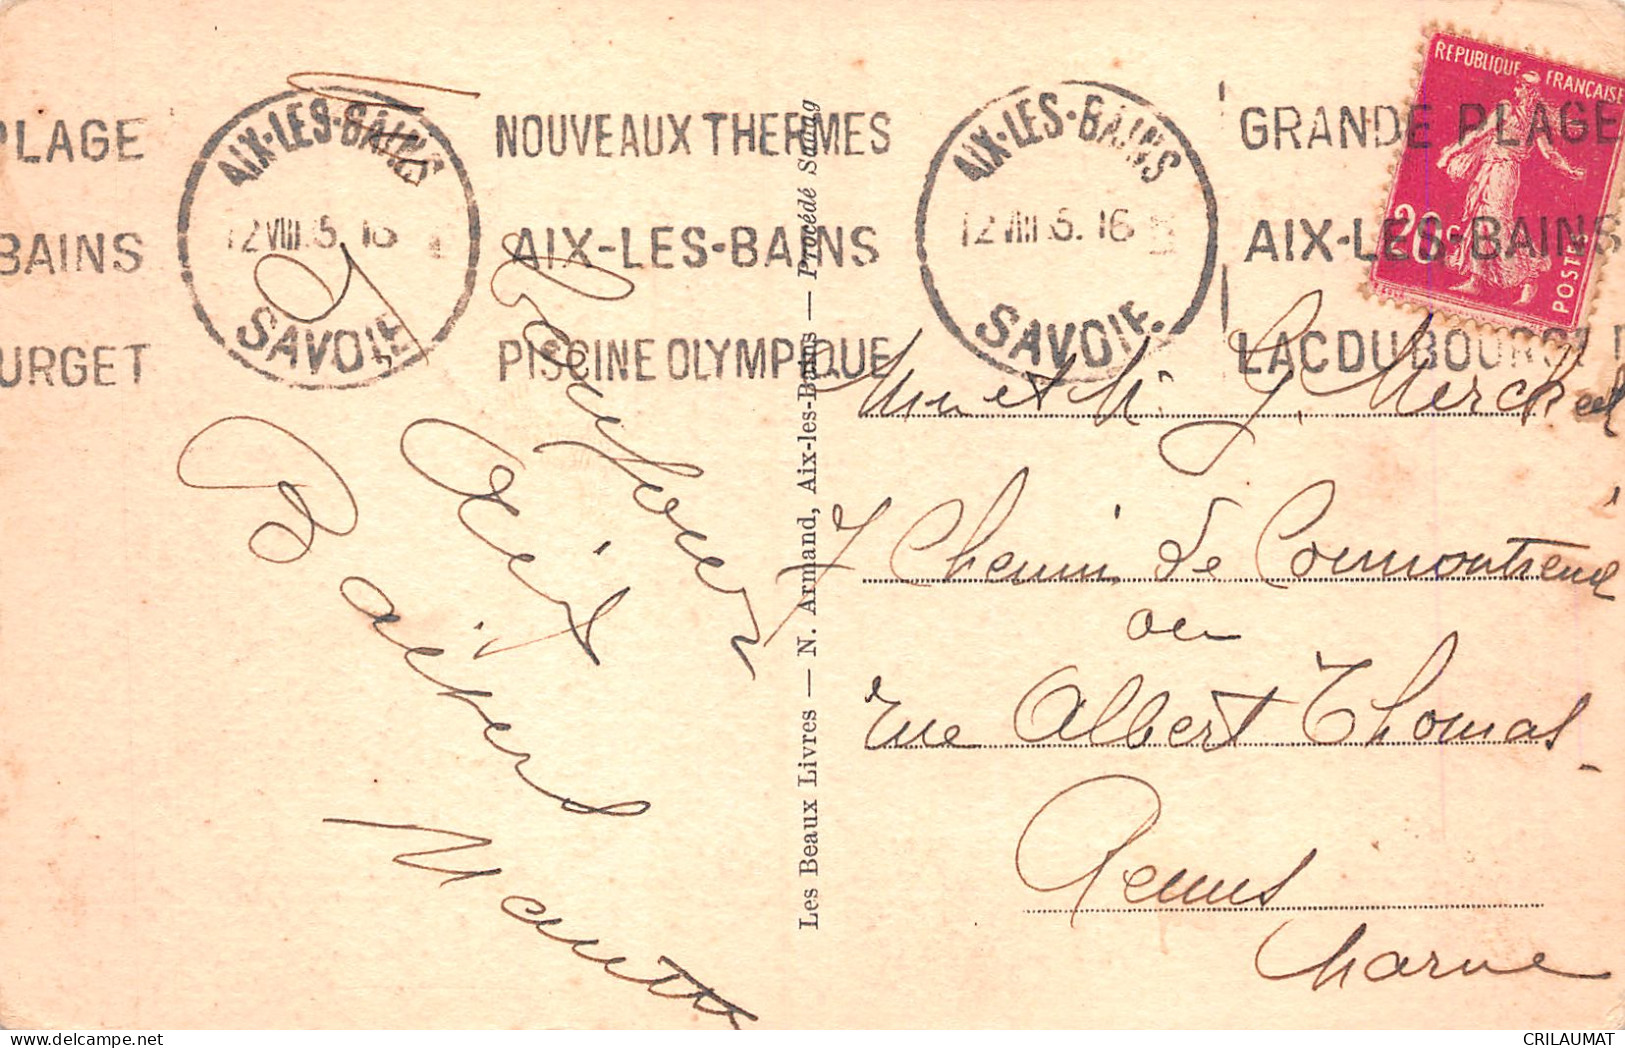 PLAGE
BAINS
URGET
AIX-LES-BAINS
12 VIII 5. 16
SAVOIE
NOUVEAUX THERMES
AIX-LES-BAINS
PISCINE OLYMPIQUE
AIX-LES-BAINS
12 VIII 5. 16
SAVOIE
GRANDE PLAGE
AIX-LES-BAINS
LAC DU BOURGET
REPUBLIQUE FRANÇAISE
20c
POSTES
Les Beaux Livres — N. Armand, Aix-les-Bains — Procédé Sdang
Bonjour
Baisers
Mme et M. G. Merck
7 Chemin de Cormontreuil
ou
rue Albert Thomas
Reims
Marne
CRILAUMAT